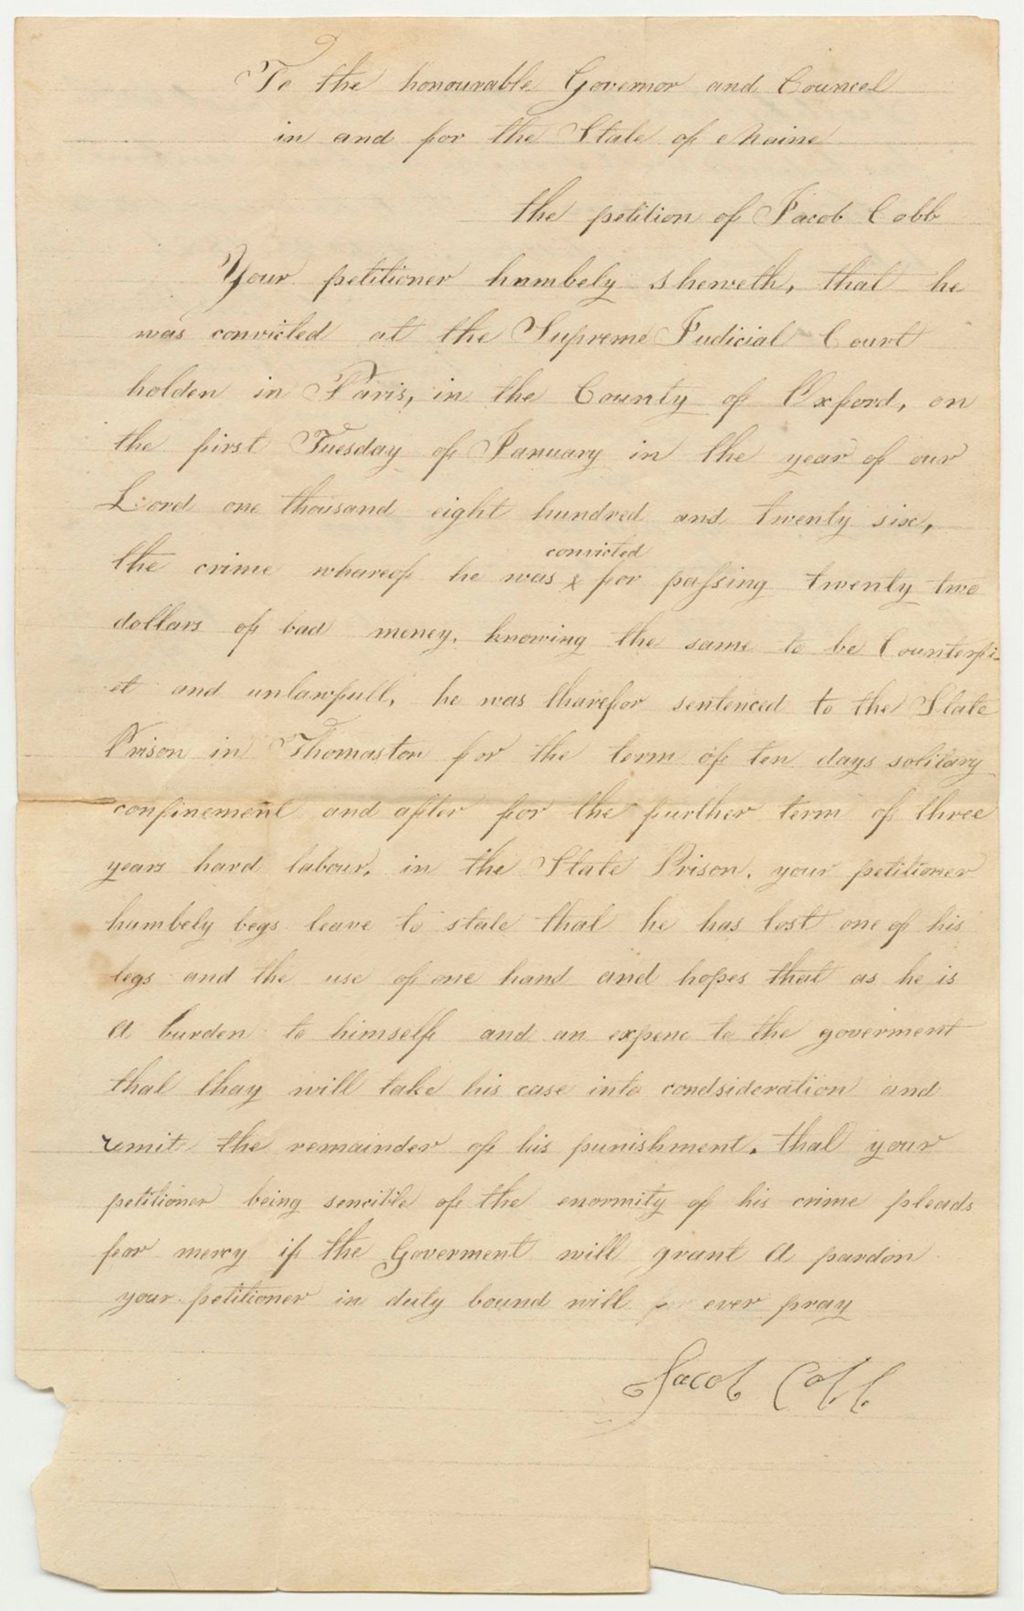 To the honourable Governor and Councel
in and for the State of Maine
the petition of Jacob Cobb
Your petitioner humbely sheweth, that he
was convicted at the Supreme Judicial Court
holden in Paris, in the County of Oxford, on
the first Tuesday of January in the year of our
Lord one thousand eight hundred and twenty six,
convicted
the crime whareof he was x for passing twenty two
dollars of bad money, knowing the same to be Counterfi-
et and unlawfull, he was tharefor sentenced to the State
Prison in Thomaston for the term of ten days solitary
confinement and after for the further term of three
years hard labour, in the State Prison. your petitioner
humbely begs leave to state that he has lost one of his
legs and the use of one hand and hopes that as he is
a burden to himself and an expenc to the goverment
that thay will take his case into condsideration and
remit the remainder of his punishment. that your
petitioner being sencible of the enormity of his crime pleads
for mercy if the Goverment will grant a pardon
your petitioner in duly bound will for ever pray
Jacob Cobb